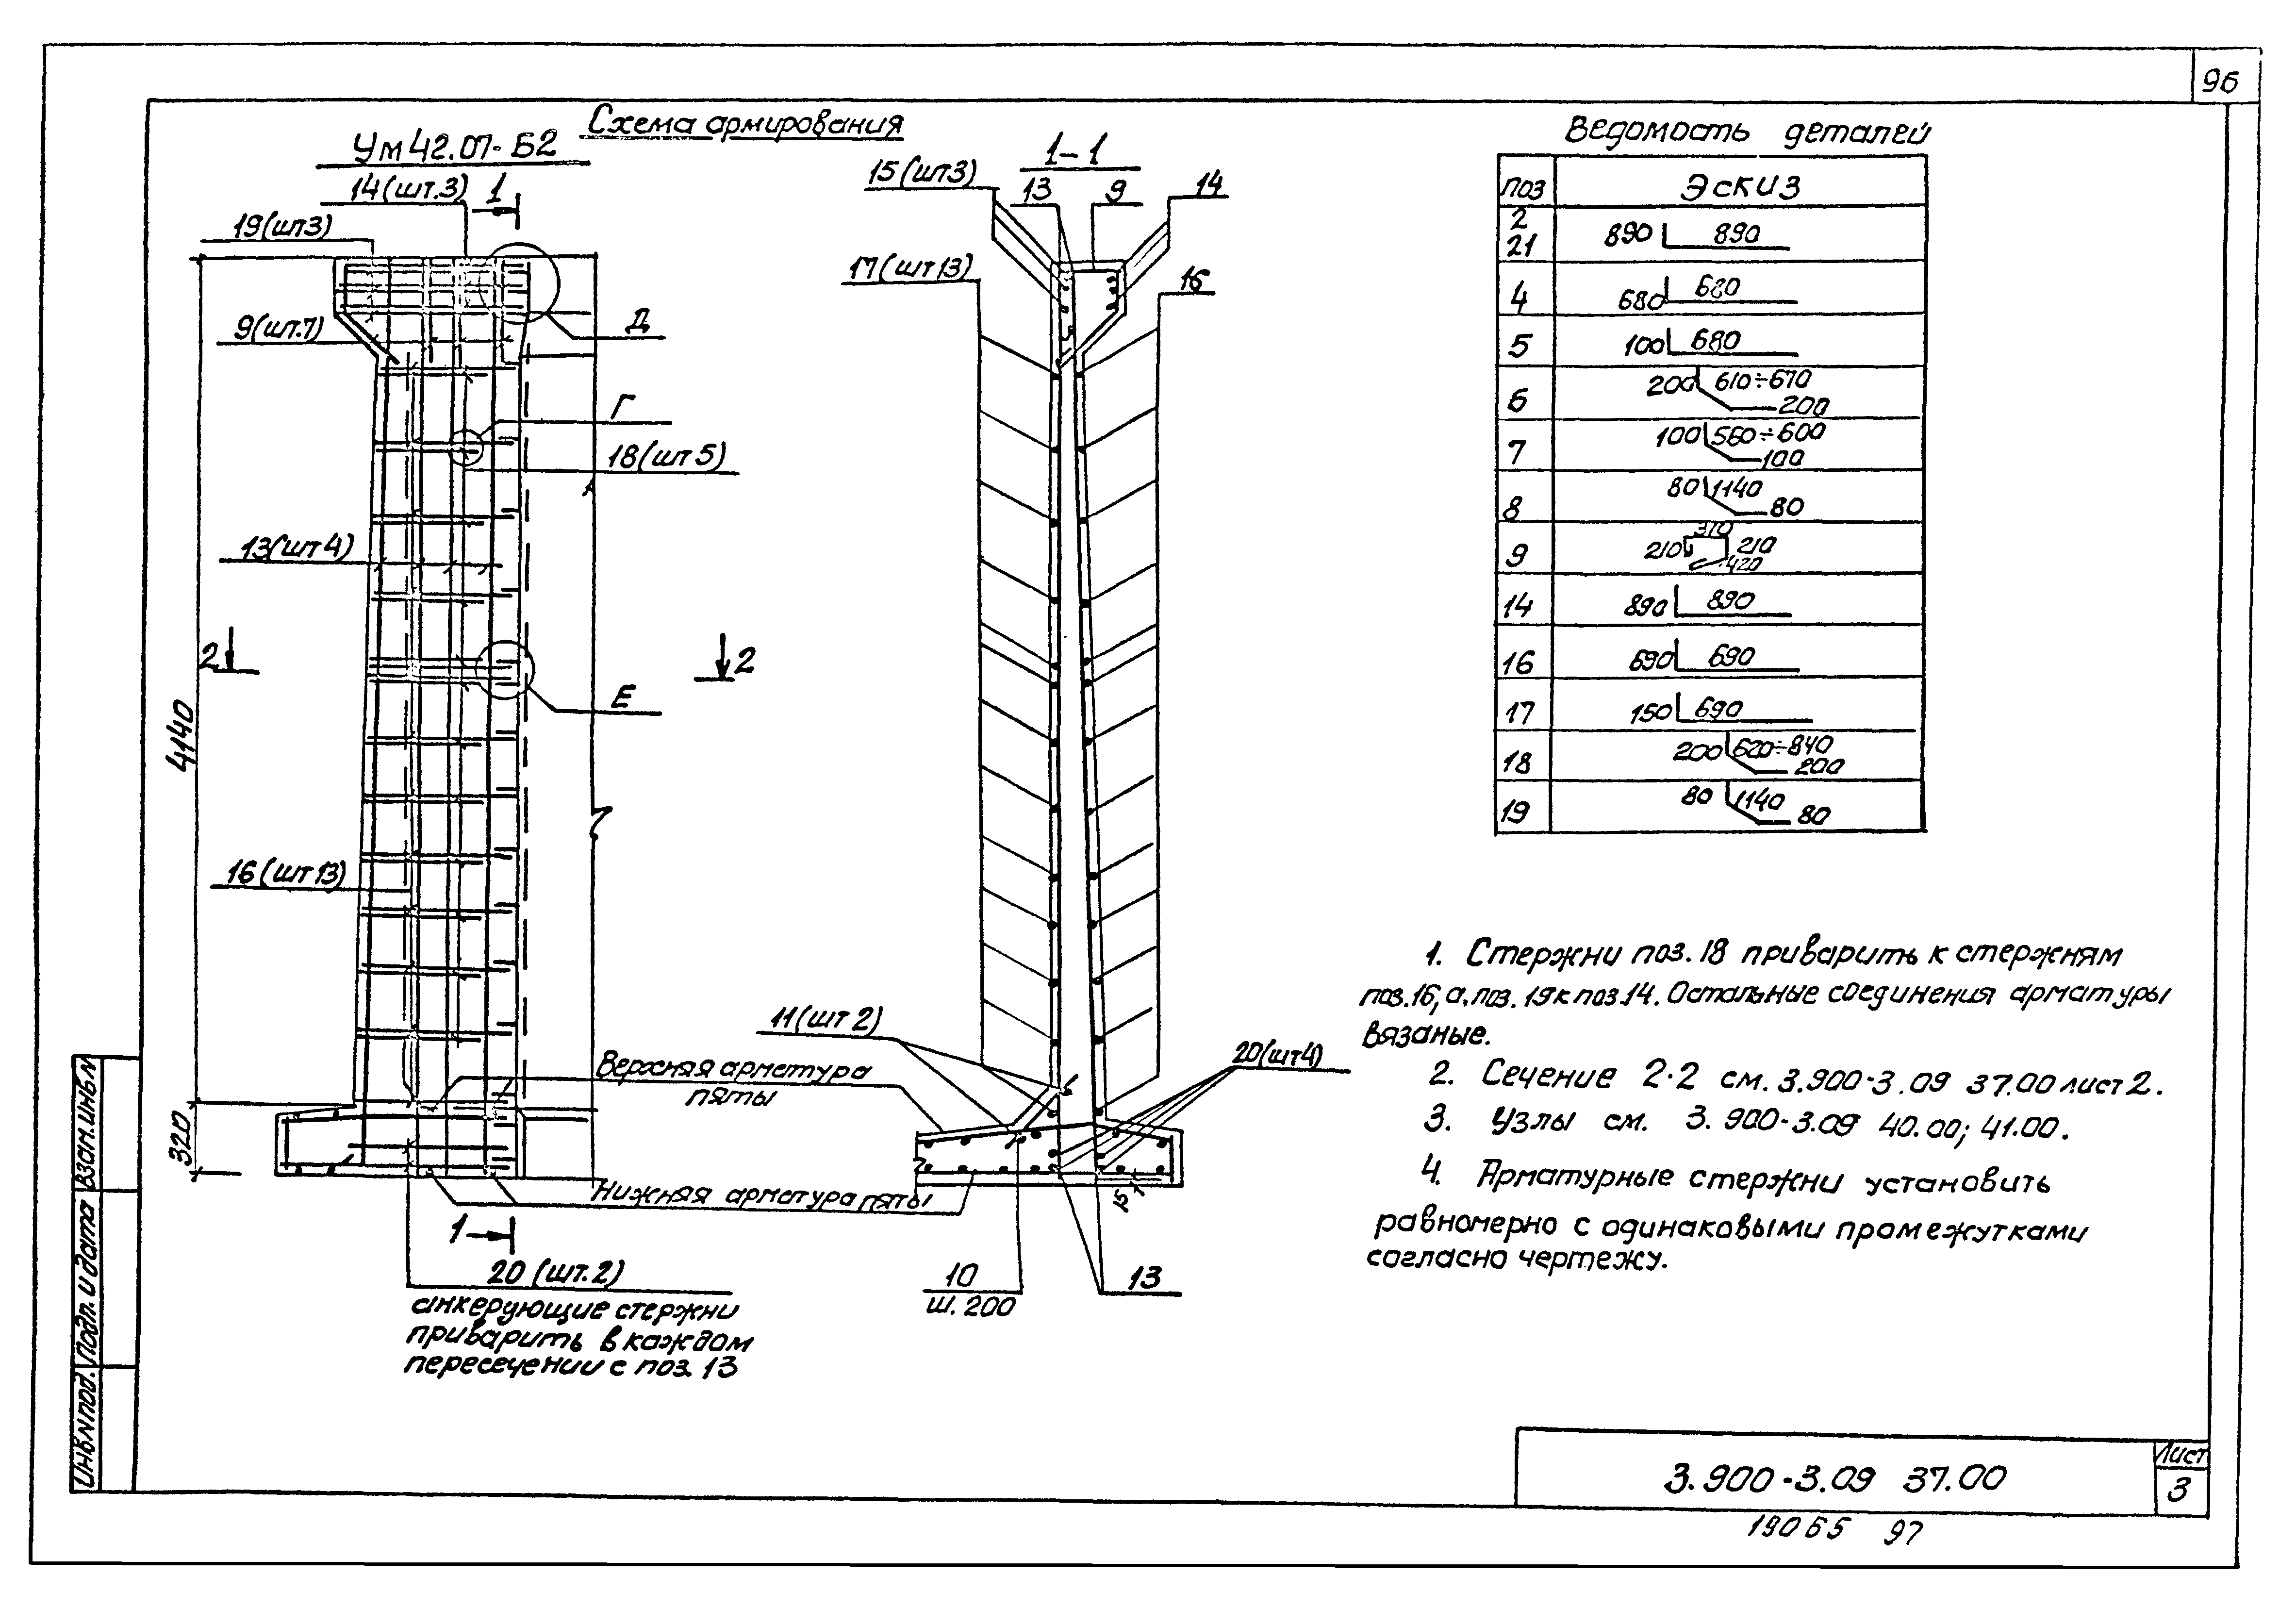 96
Схема армирования
Ум 42.07-Б2
14 (шт.3)
1
19 (шт3)
9 (шт.7)
Д
Г
18 (шт 5)
13 (шт 4)
2
2
Е
4140
16 (шт 13)
320
Верхняя арматура
пяты
Нижняя арматура пяты
1
20 (шт.2)
анкерующие стержни
приварить в каждом
пересечении с поз. 13
1-1
15 (шт3)
13
9
14
17 (шт 13)
16
11 (шт 2)
20 (шт4)
15
10
ш. 200
13
Ведомость деталей
поз Эскиз
2
21 890 890
4 680 680
5 100 680
6 200 610÷670 200
7 100 560÷600 100
8 80 1140 80
9 210 370 210 420
14 890 890
16 690 690
17 150 690
18 200 620÷840 200
19 80 1140 80
1. Стержни поз. 18 приварить к стержням
поз. 16, а, поз. 19 к поз. 14. Остальные соединения арматуры
вязаные.
2. Сечение 2-2 см. 3.900-3.09 37.00 лист 2.
3. Узлы см. 3.900-3.09 40.00; 41.00.
4. Арматурные стержни установить
равномерно с одинаковыми промежутками
согласно чертежу.
Инв.N под. Подп. и дата Взам.инв.N
3.900-3.09 37.00
Лист
3
19065 97